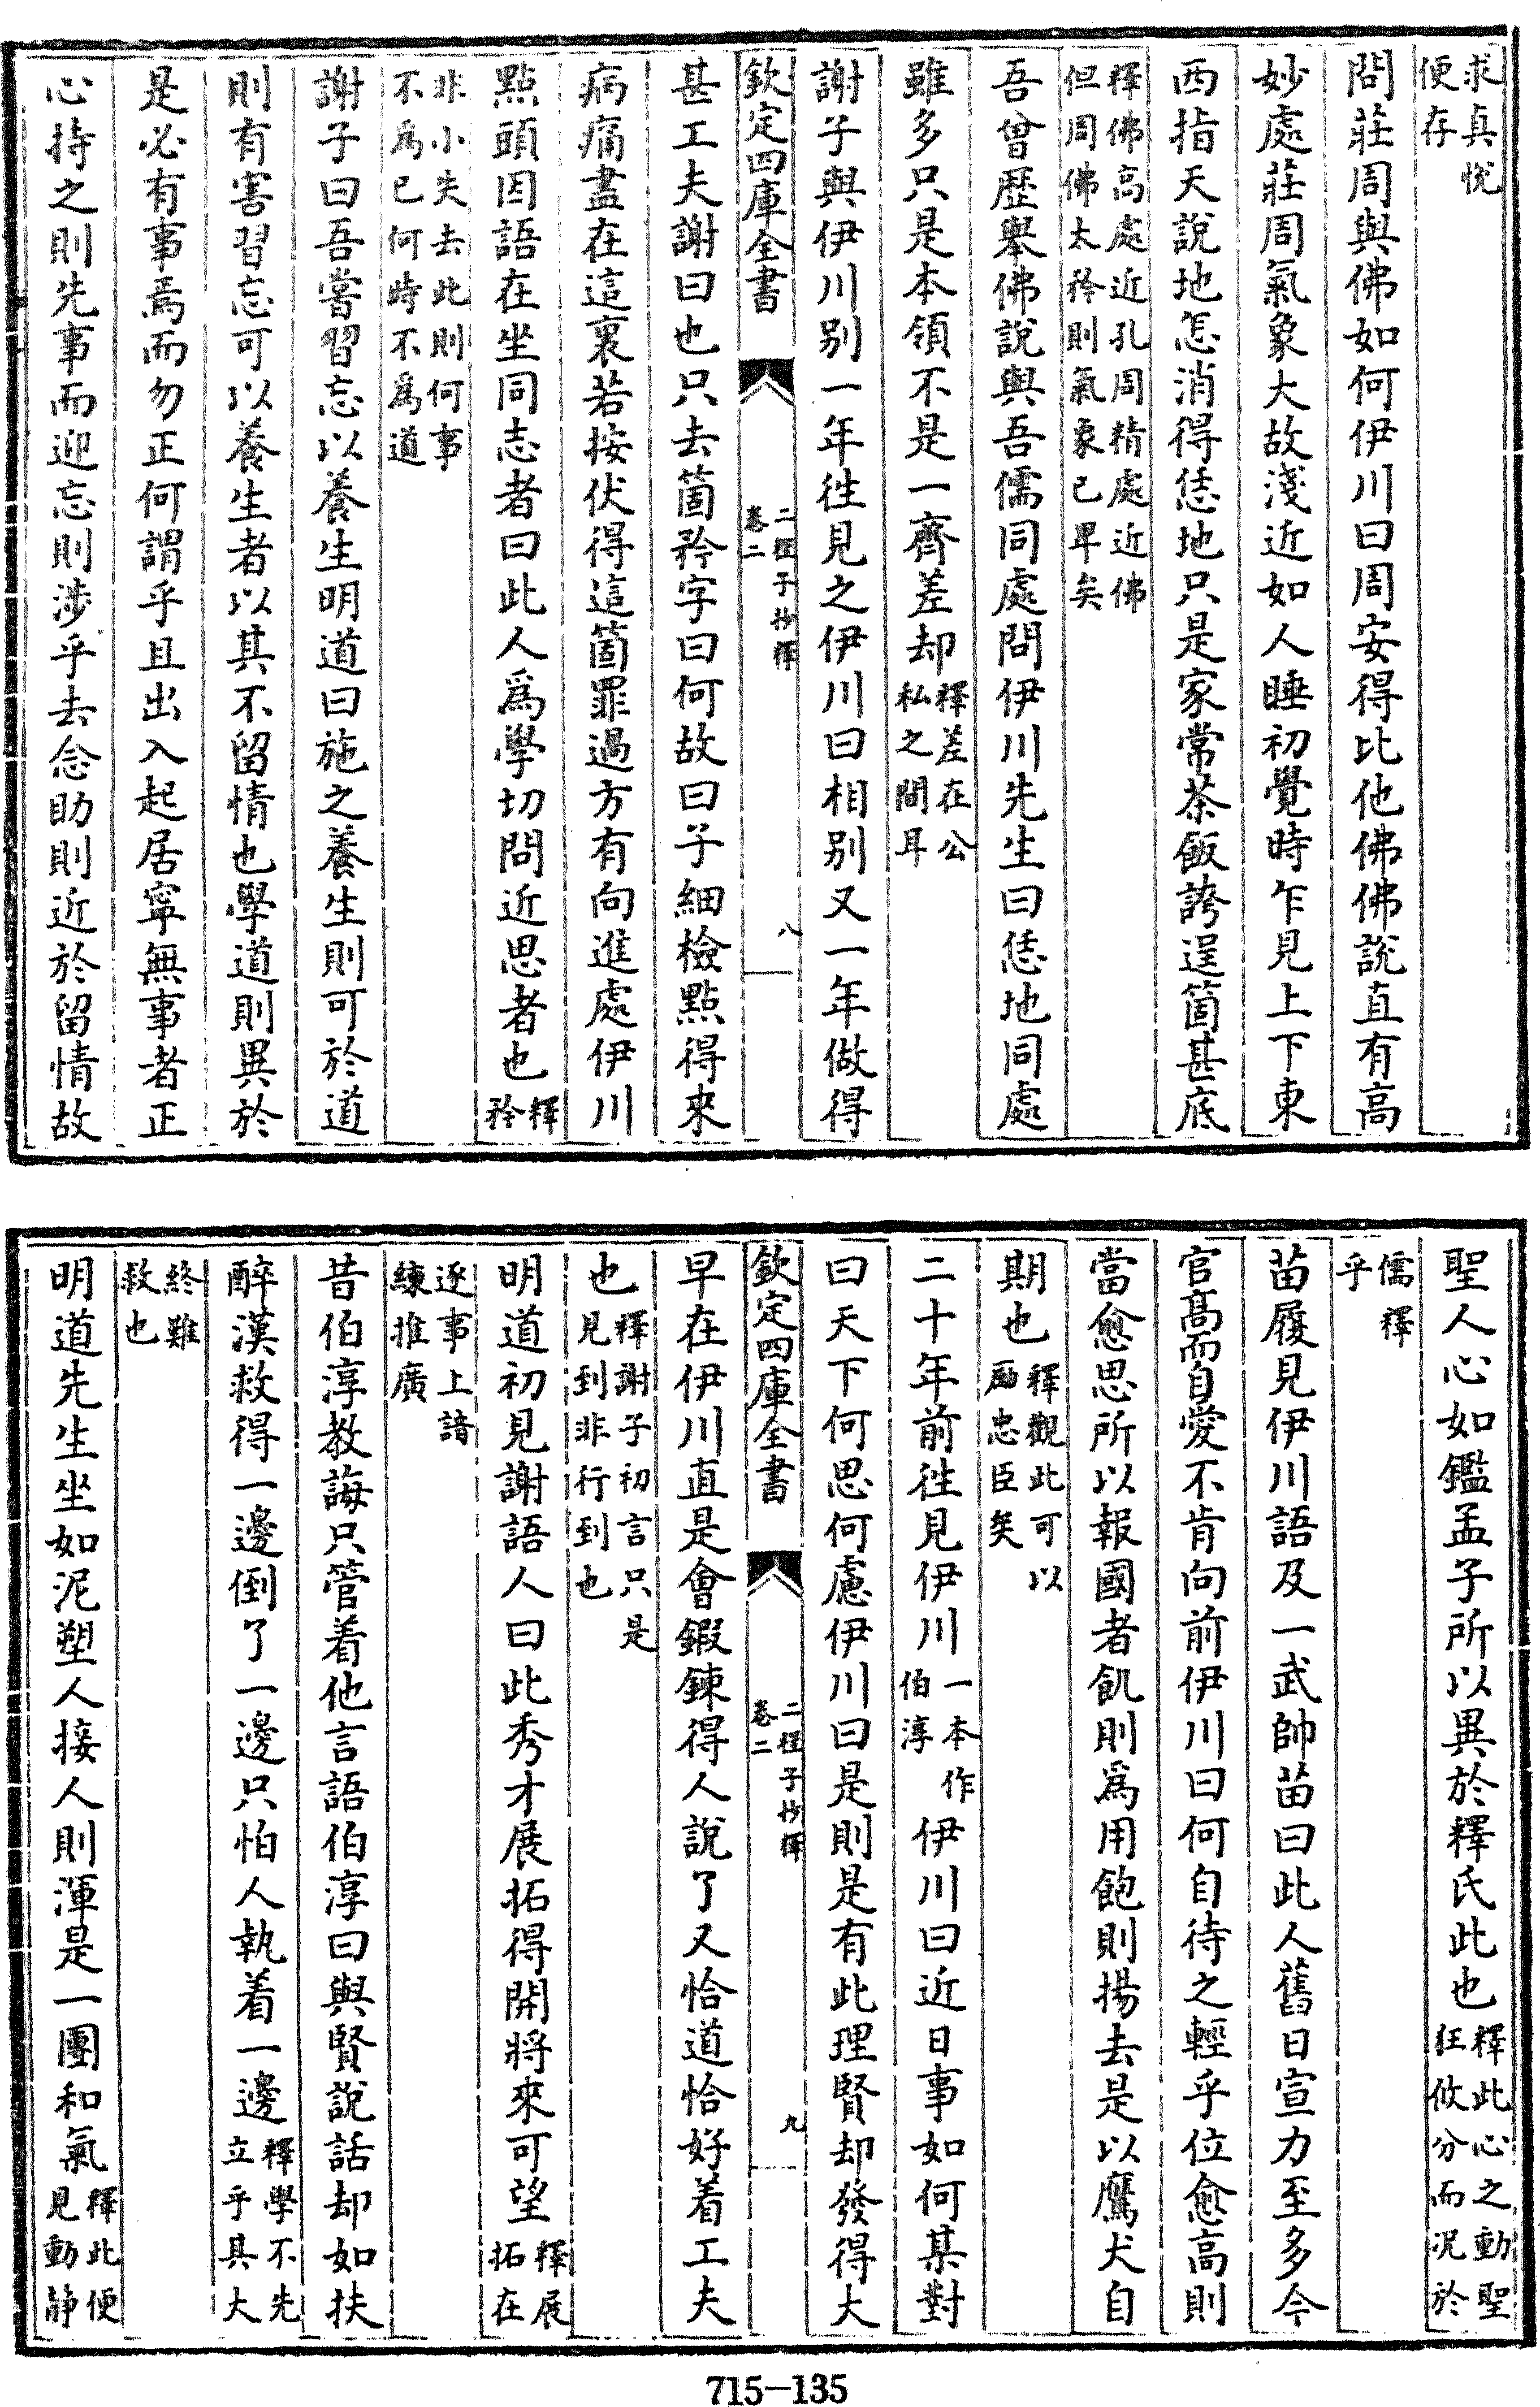 求真恱
便存
問莊周與佛如何伊川曰周安得比他佛佛說直有高
妙處莊周氣象大故淺近如人睡初覺時乍見上下東
西指天說地怎消得恁地只是家常茶飯誇逞箇甚底
釋佛高處近孔周精處近佛
但周佛太矜則氣象已卑矣
吾曾歴舉佛說與吾儒同處問伊川先生曰恁地同處
雖多只是本領不是一齊差却釋差在公
私之間耳
謝子與伊川别一年徃見之伊川曰相别又一年做得
欽定四庫全書
二程子抄釋
卷二
八
甚工夫謝曰也只去箇矜字曰何故曰子細檢點得來
病痛盡在這裏若按伏得這箇罪過方有向進處伊川
點頭因語在坐同志者曰此人爲學切問近思者也釋
矜
非小失去此則何事
不爲已何時不爲道
謝子曰吾嘗習忘以養生明道曰施之養生則可於道
則有害習忘可以養生者以其不留情也學道則異於
是必有事焉而勿正何謂乎且出入起居寧無事者正
心持之則先事而迎忘則涉乎去念助則近於留情故
聖人心如鑑孟子所以異於釋氏此也釋此心之動聖
狂攸分而况於
儒釋
乎
苗履見伊川語及一武帥苗曰此人舊日宣力至多今
官髙而自愛不肯向前伊川曰何自待之輕乎位愈高則
當愈思所以報國者飢則爲用飽則揚去是以鷹犬自
期也釋觀此可以
勵忠臣矣
二十年前徃見伊川一本作
伯淳伊川曰近日事如何某對
曰天下何思何慮伊川曰是則是有此理賢却發得大
欽定四庫全書
二程子抄釋
卷二
九
早在伊川直是會鍜鍊得人說了又恰道恰好着工夫
也釋謝子初言只是
見到非行到也
明道初見謝語人曰此秀才展拓得開將來可望釋展
拓在
逐事上諳
練推廣
昔伯淳教誨只管着他言語伯淳曰與賢說話却如扶
醉漢救得一邊倒了一邊只怕人執着一邊釋學不先
立乎其大
終難
救也
明道先生坐如泥塑人接人則渾是一團和氣釋此便
見動靜
715—135